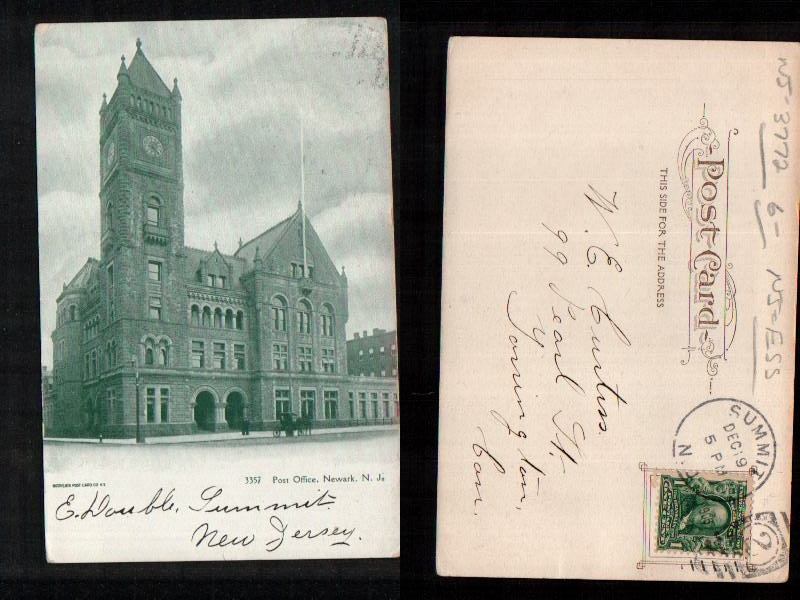 3357 Post Office, Newark. N. J.
E. Double, Summit.
New Jersey.
NJ-3772 6- NJ-ESS
Post Card
THIS SIDE FOR THE ADDRESS
W. E. Curtiss.
99 Pearl St.
Torrington,
Con.
SUMMIT
DEC 19
5 PM
N.J.
2